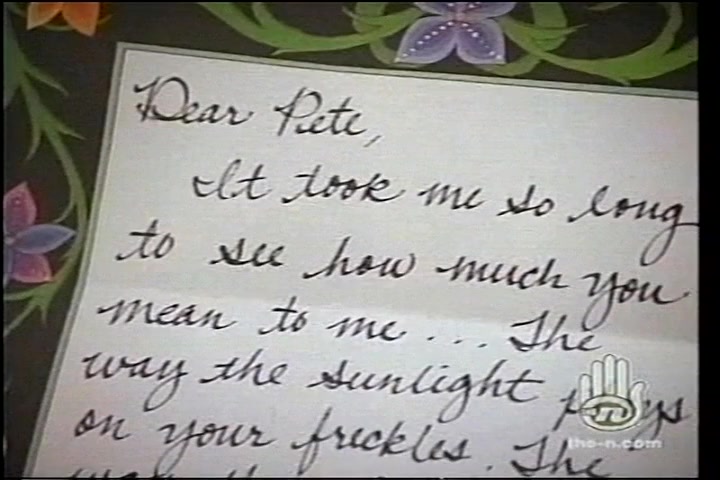 Dear Pete,
It took me so long
to see how much you
mean to me... The
way the sunlight plays
on your freckles. The
way
the-n.com